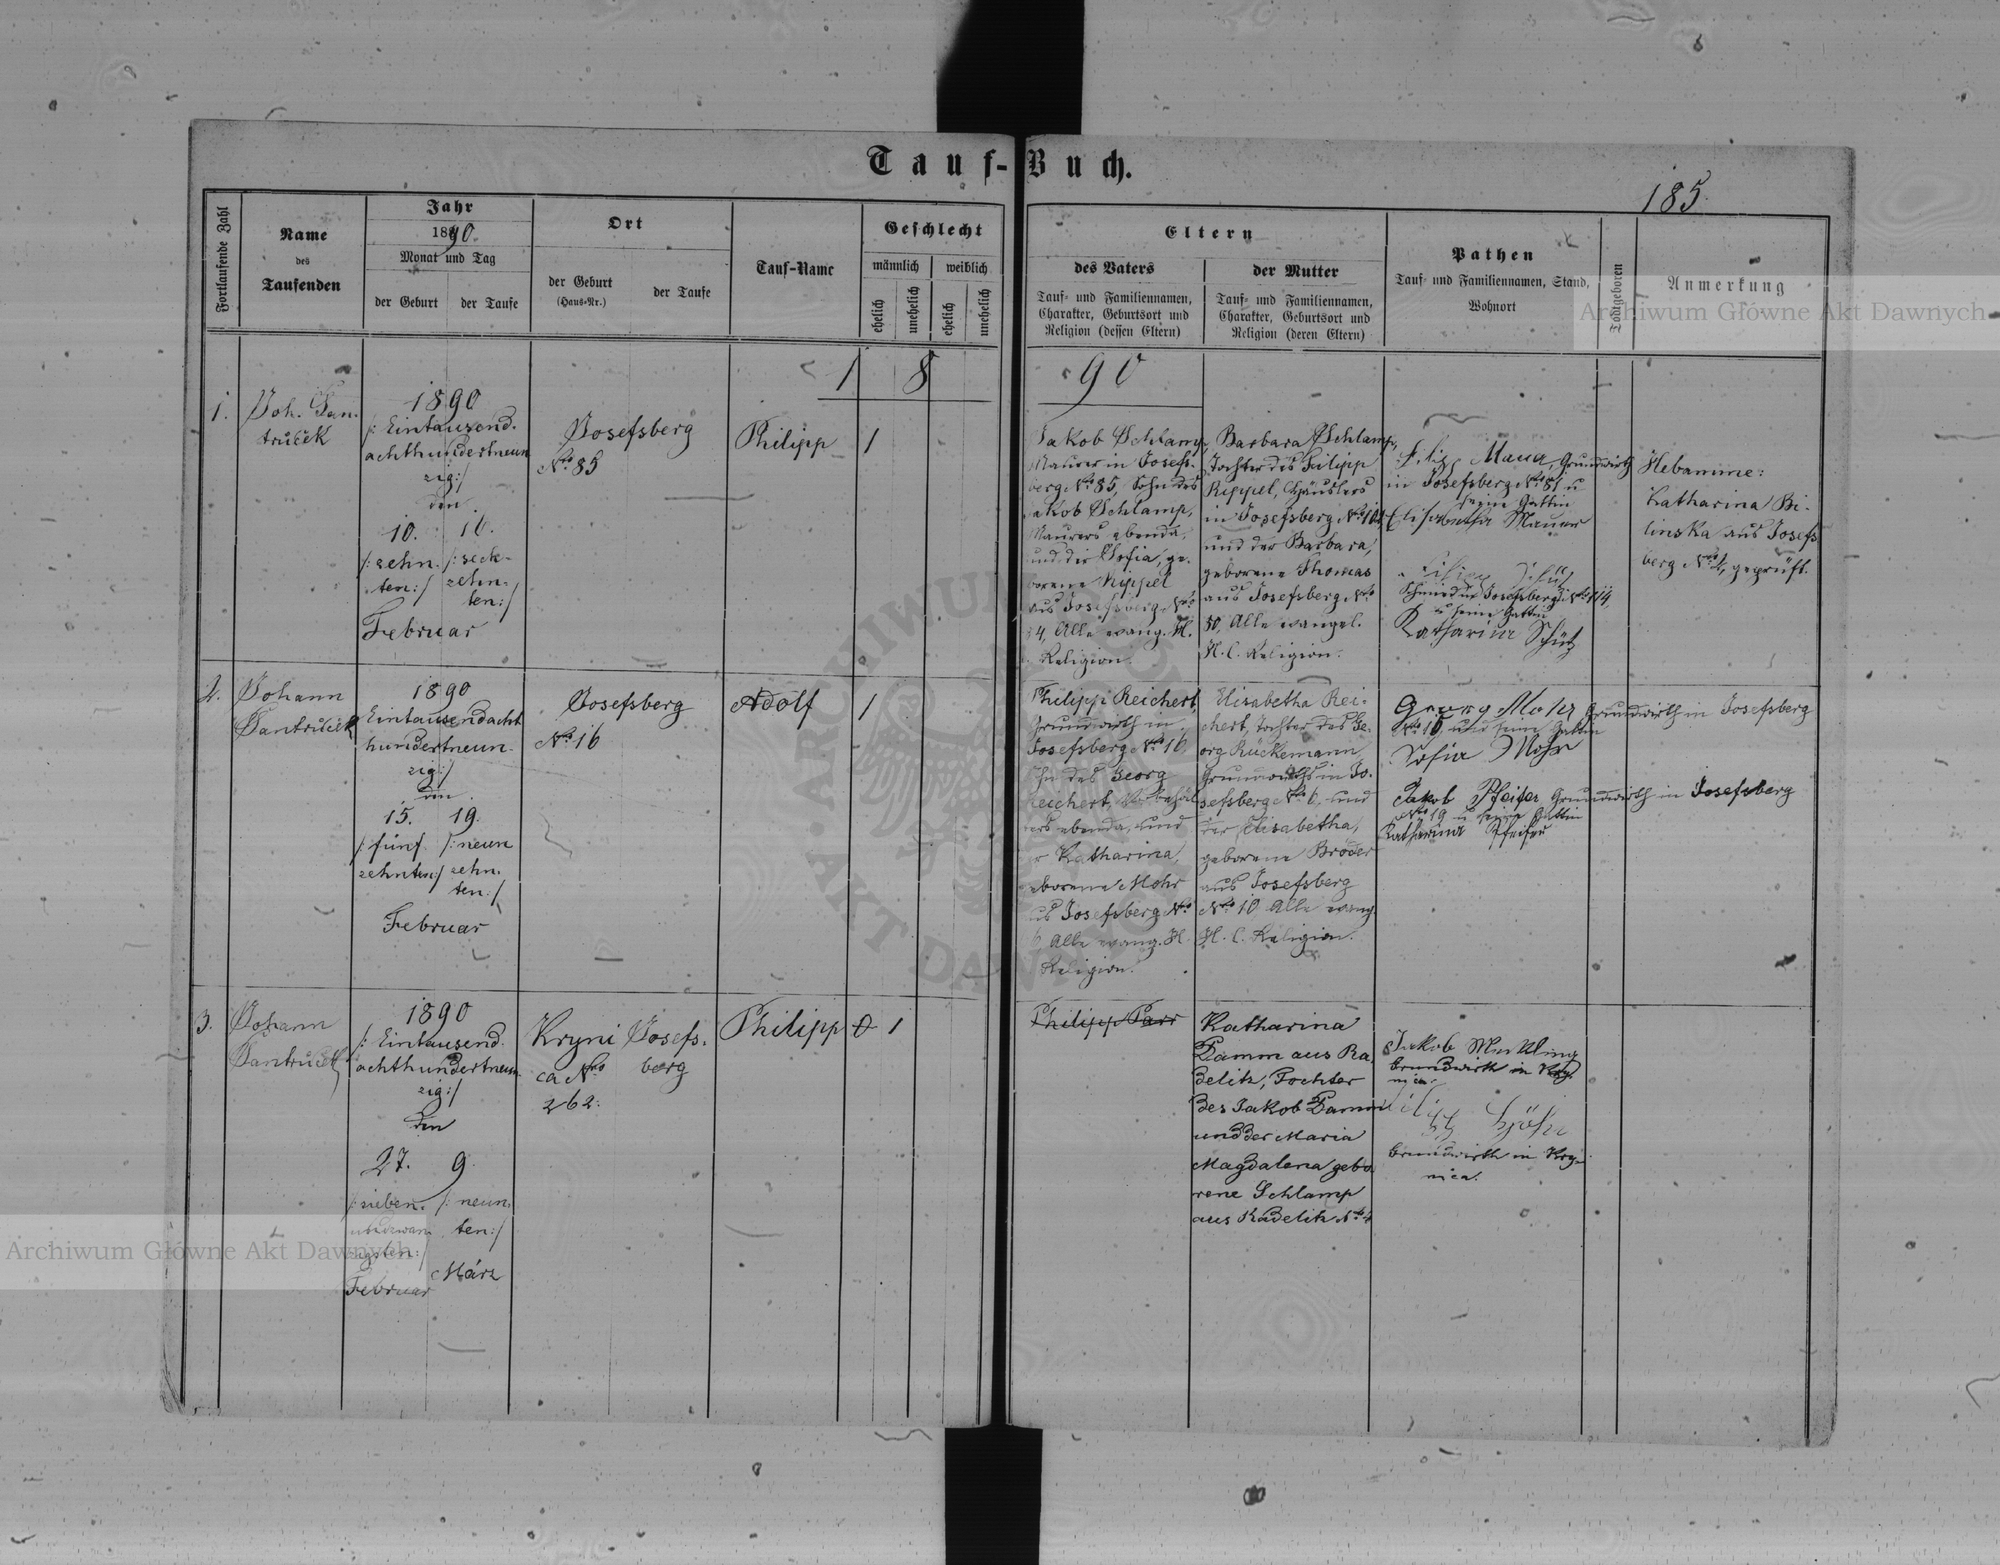 Tauf-Buch.
185.
Fortlaufende Zahl
Name
des
Taufenden
Jahr
1890.
Monat und Tag
der Geburt
der Taufe
Ort
der Geburt
(Haus-Nr.)
der Taufe
Tauf-Name
Geschlecht
männlich
weiblich
ehelich
unehelich
ehelich
unehelich
Eltern
des Vaters
Tauf- und Familiennamen,
Charakter, Geburtsort und
Religion (dessen Eltern)
der Mutter
Tauf- und Familiennamen,
Charakter, Geburtsort und
Religion (deren Eltern)
Pathen
Tauf- und Familiennamen, Stand,
Wohnort
Todtgeboren
Anmerkung
1890
1.
Joh. San-
truček
1890
/: Eintausend-
achthundertneun
zig:/
den
10. 16.
/: zehn- /: sech-
ten:/ zehn-
ten:/
Februar
Josefsberg
No 85
Philipp
1
Jakob Schlamp,
Maurer in Josefs-
berg No 85, Sohn des
Jakob Schlamp,
Maurers ebenda,
und der Sofia, ge-
borene Rippel
aus Josefsberg No
Alle evang. H.
Religion.
Barbara Schlamp,
Tochter des Filipp
Rippel, Häuslers
in Josefsberg No
und der Barbara,
geborene Thomas
aus Josefsberg No
80, Alle evangel.
H. C. Religion.
Mauer, Grundwirth
in Josefsberg No 81 u
seine Gattin
Elisabetha Mauer
Schmied in Josefsberg No
u seine Gattin
Katharina Schütz
Hebamme:
Katharina Bi-
linska aus Josefs
berg No, geprüft.
2.
Johann
Santruček
1890
Eintausendacht
hundertneun-
zig:/
den
15. 19.
/: fünf- /: neun
zehnten:/ zehn-
ten:/
Februar
Josefsberg
No 16
Adolf
1
Philipp Reichert,
Grundwirth in
Josefsberg No 16,
des Georg
Reichert,
ebenda, und
Katharina,
geborene Mohr
aus Josefsberg No
Alle evang. H.
Religion.
Elisabetha Rei-
chert, Tochter des Ge-
org Rückemann
Grundwirths in Jo-
sefsberg No 6, und
der Elisabetha,
geborene Bröder
aus Josefsberg
No 10 Alle evang.
H. C. Religion.
Georg Mohr Grundwirth in Josefsberg
No 15, und seine Gattin
Sofia Mohr
Jakob Pfeifer Grundwirth in Josefsberg
No 19 u seine Gattin
Katharina Pfeifer
3.
Johann
Santruček
1890
/: Eintausend-
achthundertneun-
zig:/
den
27. 9.
/: sieben- /: neun-
undzwan- ten:/
zigsten:/
Februar März
Kryni
ca No
262.
Josefs-
berg
Philipp
0 1
Philipp Parr
Katharina
Damm aus Ra-
delitz, Tochter
des Jakob Damm
und der Maria
Magdalena gebo-
rene Schlamp
aus Radelitz No 4
Jakob Merkling
Grundwirth in Kry-
nica.
Grundwirth in Kry-
nica.
Archiwum Główne Akt Dawnych
Archiwum Główne Akt Dawnych
ARCHIWUM GŁÓWNE
AKT DAWNYCH